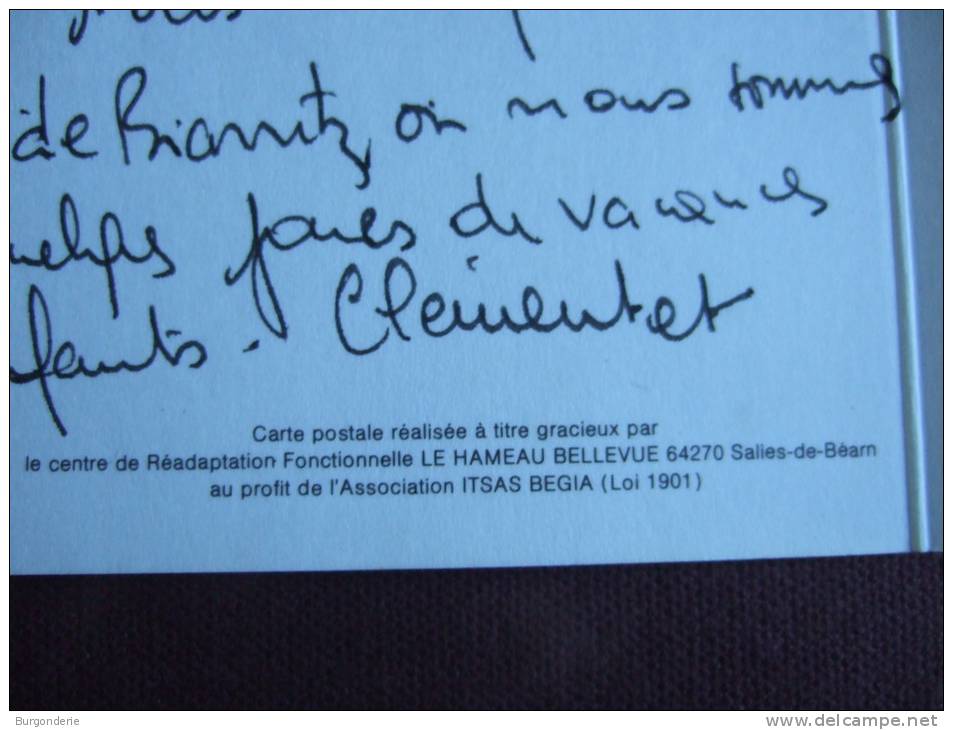 de Biarritz, où nous sommes
quelques jours de vacances
Clémentet
Carte postale réalisée à titre gracieux par
le centre de Réadaptation Fonctionnelle LE HAMEAU BELLEVUE 64270 Salies-de-Béarn
au profit de l'Association ITSAS BEGIA (Loi 1901)
Burgonderie
www.delcampe.net